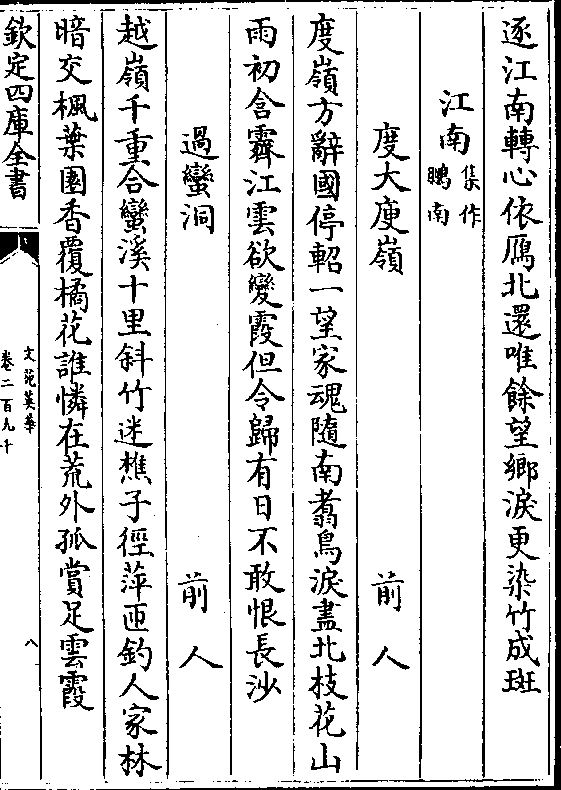 逐江南轉心依鴈北還唯餘望鄉淚更染竹成斑
江南集作鵬南
度大庾嶺　前人
度嶺方辭國停軺一望家魂隨南翥鳥淚盡北枝花山
雨初含霽江雲欲變霞但令歸有日不敢恨長沙
過蠻洞　前人
越嶺千重合蠻溪十里斜竹迷樵子徑萍匝釣人家林
暗交楓葉園香覆橘花誰憐在荒外孤賞足雲霞
欽定四庫全書
文苑英華
卷二百九十
八